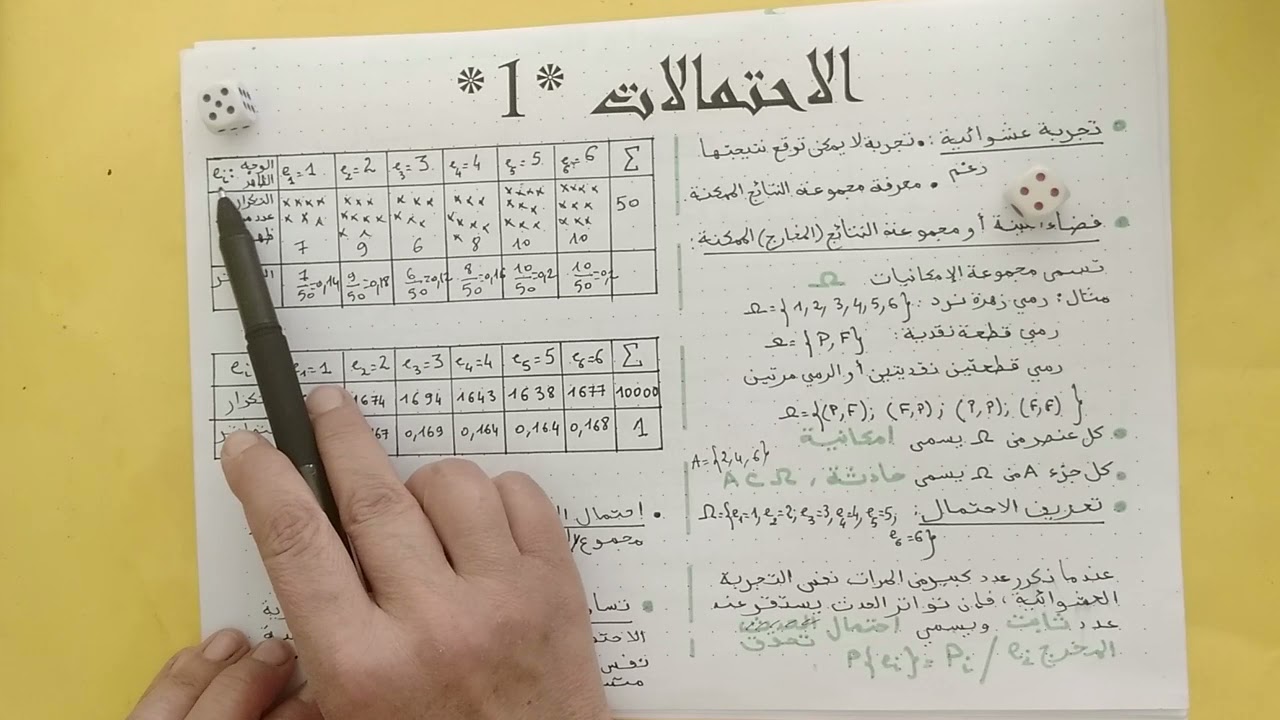 الاحتمالات *1*
تجربة عشوائية: • تجربة لا يمكن توقع نتيجتها
رغم
• معرفة مجموعة النتائج الممكنة
فضاء أو مجموعة النتائج (المخارج) الممكنة:
تسمى مجموعة الإمكانيات Ω
مثال: رمي زهرة نرد: Ω={1,2,3,4,5,6}
رمي قطعة نقدية: Ω={P,F}
رمي قطعتين نقديتين أو الرمي مرتين
Ω={(P,F); (F,P); (P,P); (F,F)}
كل عنصر من Ω يسمى إمكانية
A={2,4,6}
كل جزء A من Ω يسمى حادثة, A⊂Ω
تعريف الاحتمال: Ω={e₁=1, e₂=2; e₃=3, e₄=4, e₅=5;
e₆=6}
عندما نكرر عدد كبير من المرات نفس التجربة
العشوائية, فإن تواتر الحدث يستقر عند
عدد ثابت ويسمى احتمال تحقق
المخرج eᵢ / P{eᵢ}=Pᵢ
eᵢ: الوجه الظاهر e₁=1 e₂=2 e₃=3 e₄=4 e₅=5 e₆=6 Σ
التكرار xxxx xxx xxx xxx xxxx xxxx 50
عدد 7 9 6 8 10 10
7/50=0,14 9/50=0,18 6/50=0,12 8/50=0,16 10/50=0,2 10/50=0,
eᵢ e₁=1 e₂=2 e₃=3 e₄=4 e₅=5 e₆=6 Σ
1674 1694 1643 1638 1677 10000
0,169 0,164 0,164 0,168 1
• احتمال
مجموع
نفس